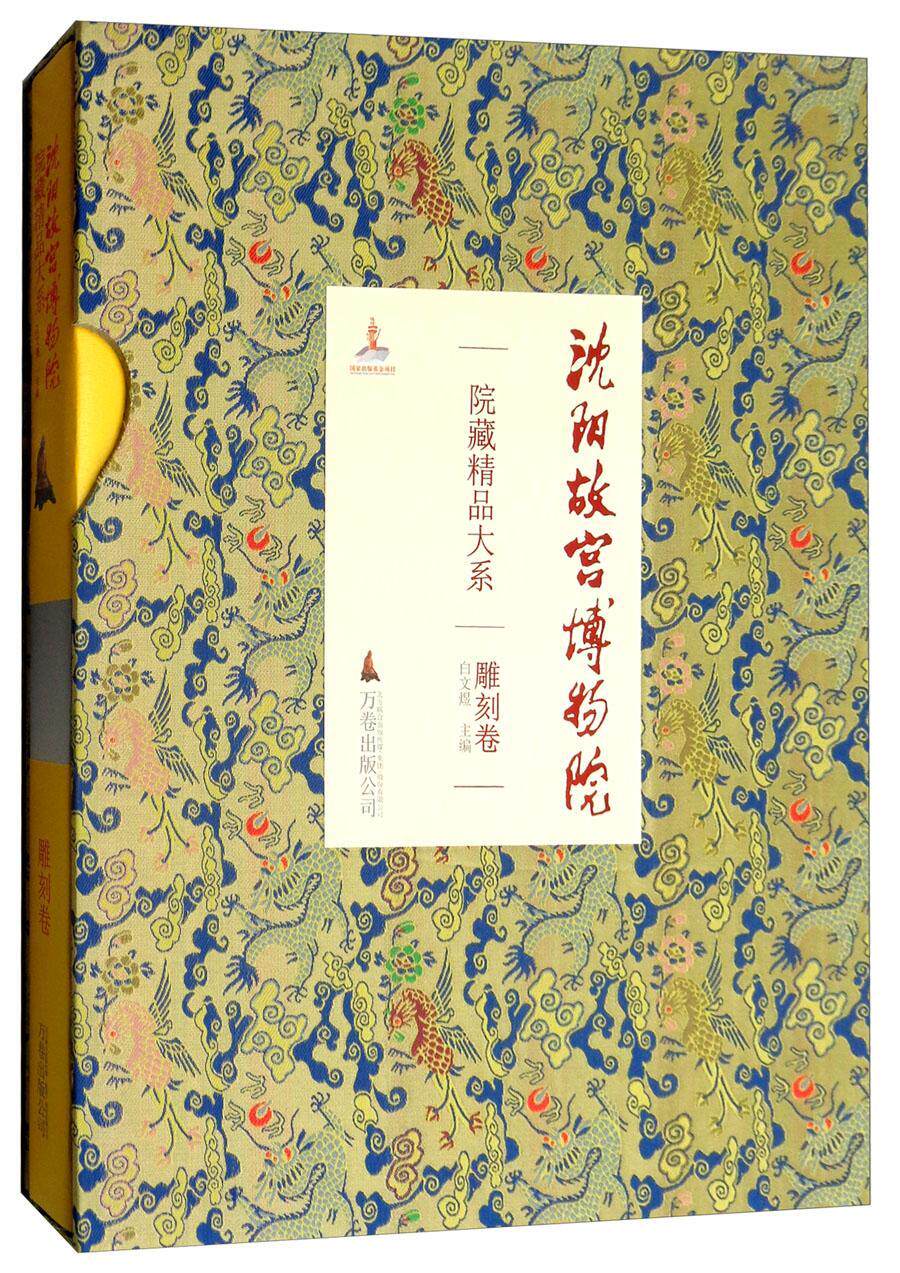 沈阳故宫博物院
院藏精品大系
雕刻卷
白文煜 主编
国家出版基金项目
万卷出版公司
沈阳故宫博物院
院藏精品大系
雕刻卷
万卷出版公司